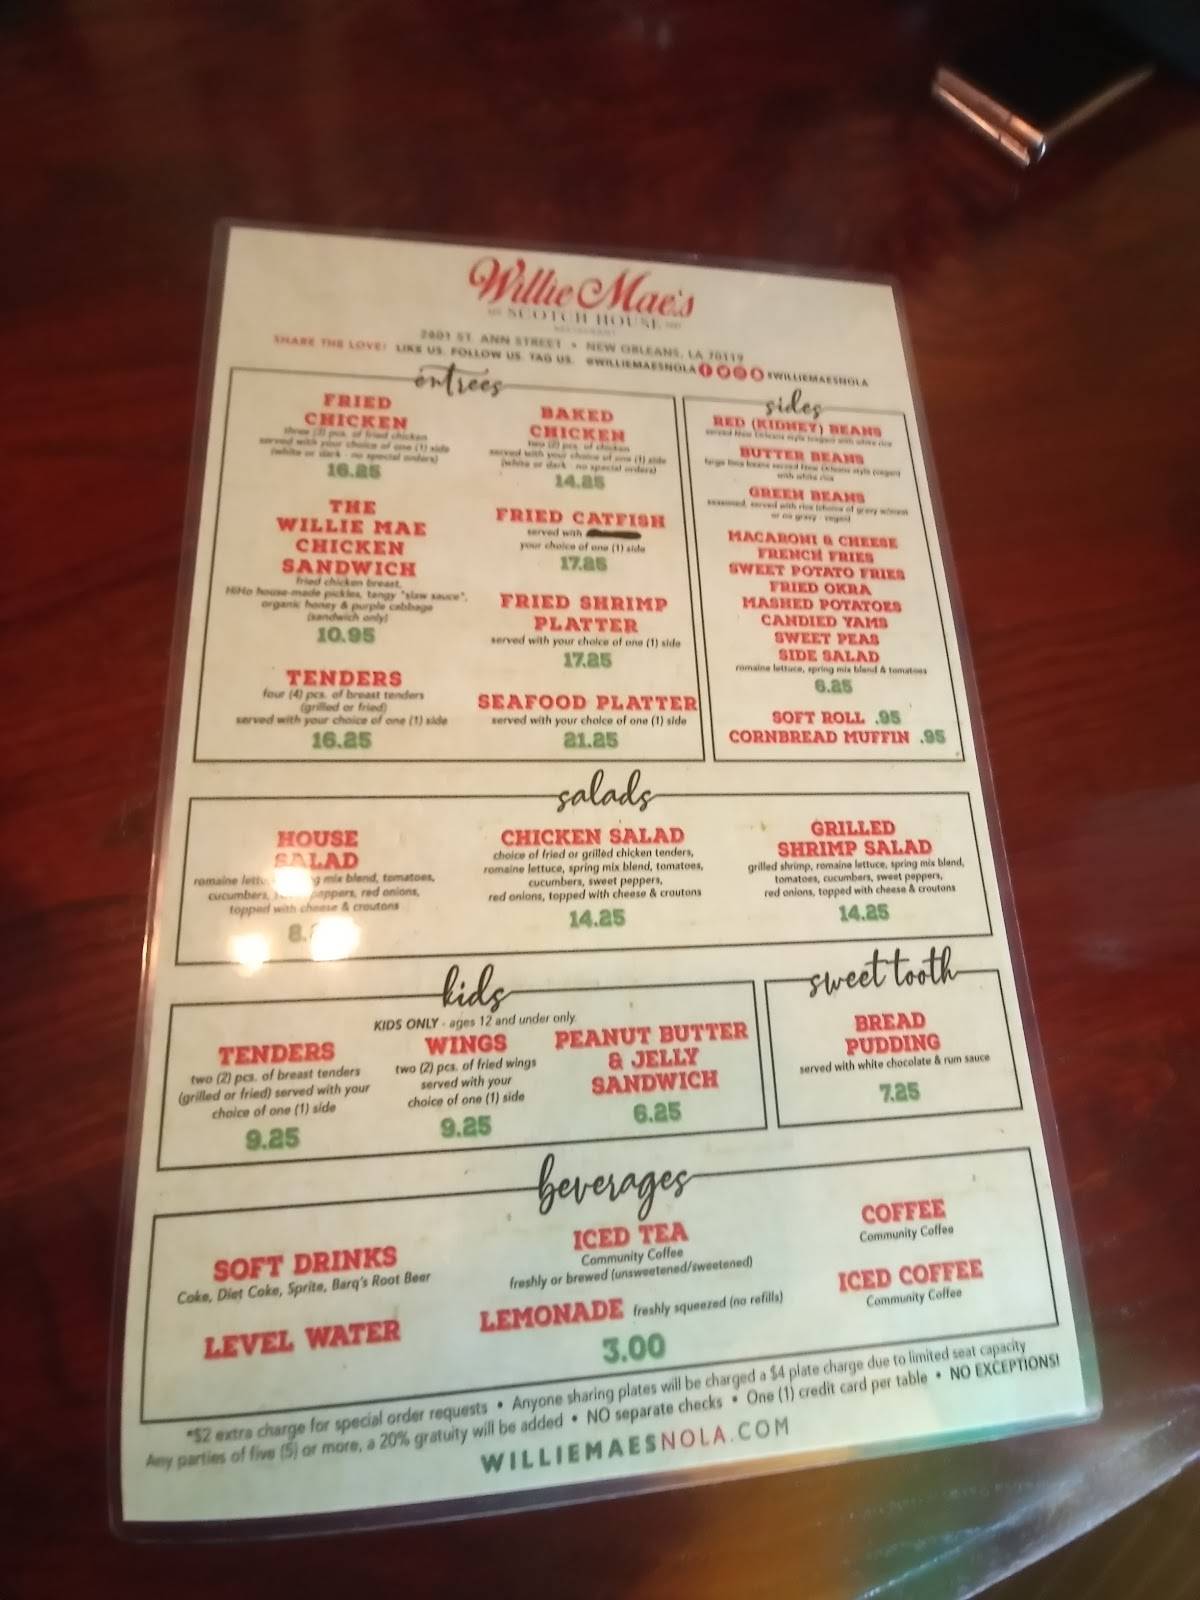 Willie Mae's
SCOTCH HOUSE
RESTAURANT
2401 ST. ANN STREET • NEW ORLEANS, LA 70119
SHARE THE LOVE! LIKE US. FOLLOW US. TAG US. @WILLIEMAESNOLA #WILLIEMAESNOLA
entrées
FRIED
CHICKEN
three (3) pcs. of fried chicken
served with your choice of one (1) side
(white or dark - no special orders)
16.25
THE
WILLIE MAE
CHICKEN
SANDWICH
fried chicken breast,
HiHo house-made pickles, tangy "slaw sauce",
organic honey & purple cabbage
(sandwich only)
10.95
TENDERS
four (4) pcs. of breast tenders
(grilled or fried)
served with your choice of one (1) side
16.25
BAKED
CHICKEN
two (2) pcs. of chicken
served with your choice of one (1) side
(white or dark - no special orders)
14.25
FRIED CATFISH
served with
your choice of one (1) side
17.25
FRIED SHRIMP
PLATTER
served with your choice of one (1) side
17.25
SEAFOOD PLATTER
served with your choice of one (1) side
21.25
sides
RED (KIDNEY) BEANS
served New Orleans style (vegan) with white rice
BUTTER BEANS
large lima beans served New Orleans style (vegan)
with white rice
GREEN BEANS
seasoned, served with rice (choice of gravy
or no gravy - vegan)
MACARONI & CHEESE
FRENCH FRIES
SWEET POTATO FRIES
FRIED OKRA
MASHED POTATOES
CANDIED YAMS
SWEET PEAS
SIDE SALAD
romaine lettuce, spring mix blend & tomatoes
6.25
SOFT ROLL .95
CORNBREAD MUFFIN .95
salads
HOUSE
SALAD
romaine mix blend, tomatoes,
cucumbers, peppers, red onions,
topped with cheese & croutons
CHICKEN SALAD
choice of fried or grilled chicken tenders,
romaine lettuce, spring mix blend, tomatoes,
cucumbers, sweet peppers,
red onions, topped with cheese & croutons
14.25
GRILLED
SHRIMP SALAD
grilled shrimp, romaine lettuce, spring mix blend,
tomatoes, cucumbers, sweet peppers,
red onions, topped with cheese & croutons
14.25
kids
KIDS ONLY - ages 12 and under only.
TENDERS
two (2) pcs. of breast tenders
(grilled or fried) served with your
choice of one (1) side
9.25
WINGS
two (2) pcs. of fried wings
served with your
choice of one (1) side
9.25
PEANUT BUTTER
& JELLY
SANDWICH
6.25
sweet tooth
BREAD
PUDDING
served with white chocolate & rum sauce
7.25
beverages
SOFT DRINKS
Coke, Diet Coke, Sprite, Barq's Root Beer
LEVEL WATER
ICED TEA
Community Coffee
freshly or brewed (unsweetened/sweetened)
LEMONADE freshly squeezed (no refills)
3.00
COFFEE
Community Coffee
ICED COFFEE
Community Coffee
*$2 extra charge for special order requests • Anyone sharing plates will be charged a $4 plate charge due to limited seat capacity
Any parties of five (5) or more, a 20% gratuity will be added • NO separate checks • One (1) credit card per table • NO EXCEPTIONS!
WILLIEMAESNOLA.COM